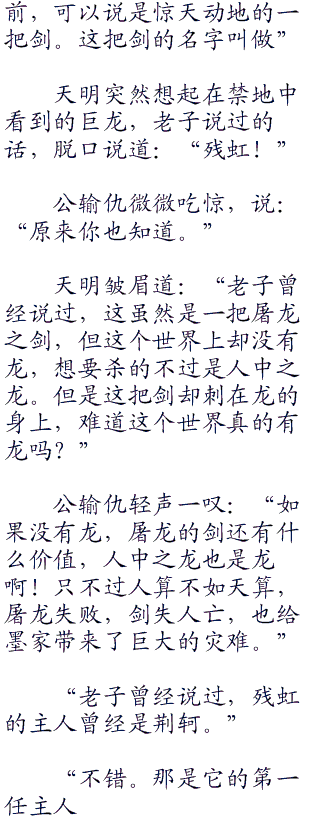 前，可以说是惊天动地的一
把剑。这把剑的名字叫做”
天明突然想起在禁地中
看到的巨龙，老子说过的
话，脱口说道：“残虹！”
公输仇微微吃惊，说：
“原来你也知道。”
天明皱眉道：“老子曾
经说过，这虽然是一把屠龙
之剑，但这个世界上却没有
龙，想要杀的不过是人中之
龙。但是这把剑却刺在龙的
身上，难道这个世界真的有
龙吗？”
公输仇轻声一叹：“如
果没有龙，屠龙的剑还有什
么价值，人中之龙也是龙
啊！只不过人算不如天算，
屠龙失败，剑失人亡，也给
墨家带来了巨大的灾难。”
“老子曾经说过，残虹
的主人曾经是荆轲。”
“不错。那是它的第一
任主人